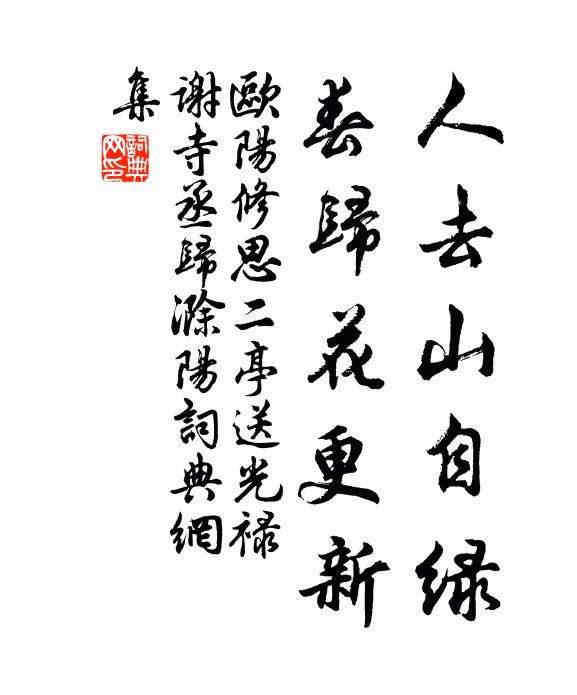 人去山自緑
春歸花更新
歐陽修思二亭送光祿
謝寺丞歸滁陽詞典網
集
詞典
网印